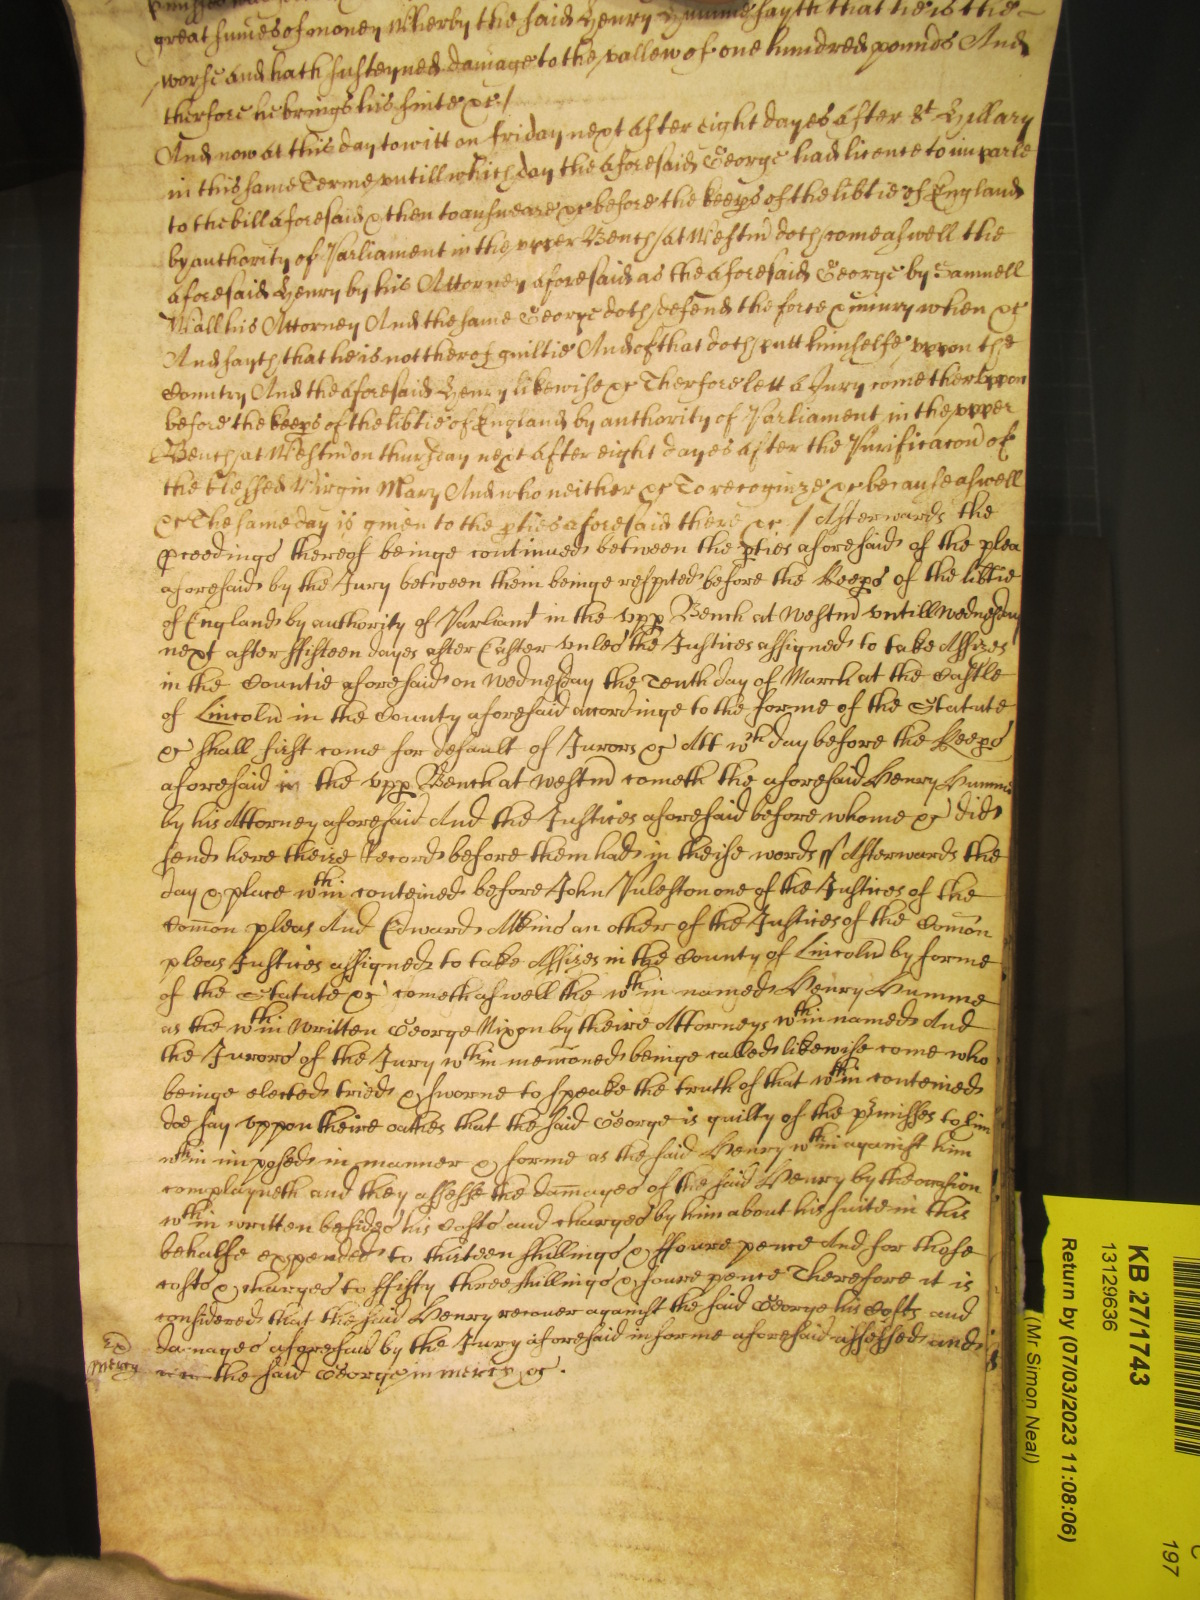 great sumes of money Wherby the said Henry Humme sayth that he is the
worse and hath susteyned damage to the vallew of one hundred pounds And
therfore he brings his suite &c /
And now at this day to witt on friday next after eight dayes after St Hillary
in this same Terme untill which day the aforesaid George had licence to imparle
to the bill aforesaid & then to answeare &c before the keeps of the libtie of England
by authority of Parliament in the upper Bench at Westm doth come aswell the
aforesaid Henry by his Attorney aforesaid as the aforesaid George by Samuell
Wall his Attorney And the same George doth defend the force & iniury when &c
And sayth that he is not therof guiltie And of that doth putt himselfe uppon the
Country And the aforesaid Henry likewise &c Therfore lett a Jury come therupon
before the keeps of the libtie of England by authority of Parliament in the upper
Bench at Westm on thursday next after eight dayes after the Purificacon of
the blessed Virgin Mary And who neither &c To recognize &c because aswell
&c The same day is given to the pties aforesaid there &c / Afterwards the
pceedings thereof beinge continued between the pties aforesaid of the plea
aforesaid by the Jury between them beinge respited before the Keeps of the libtie
of England by authority of Parliamt in the upp Bench at Westm untill Wednesday
next after ffifteen dayes after Easter unles the Justices assigned to take Assizes
in the Countie aforesaid on Wednesday the Tenth day of March at the Castle
of Lincoln in the County aforesaid accordinge to the forme of the Statute
&c shall first come for default of Jurors &c Att wch day before the Keeps
aforesaid in the upp Bench at Westm cometh the aforesaid Henry Humme
by his Attorney aforesaid And the Justices aforesaid before whome &c did
send here theire Record before them had in theise words ss Afterwards the
day & place wthin conteined before John Puleston one of the Justices of the
Comon pleas And Edward Atkins an other of the Justices of the Comon
pleas Justices assigned to take Assizes in the County of Lincoln by forme
of the Statute &c cometh aswell the wthin named Henry Humme
as the wthin written George Nixon by theire Attorneys wthin named And
the Jurors of the Jury wthin menconed beinge called likewise come who
beinge elected tried & sworne to speake the truth of that wthin conteined
doe say uppon theire oathes that the said George is guilty of the pmisses to him
wthin imposed in manner & forme as the said Henry wthin against him
complayneth and they assesse the damages of the said Henry by the occasion
wthin written besides his Costs and charges by him about his suite in this
behalfe expended to thirteen shillings & ffoure pence And for those
costs & charges to ffifty three shillings & foure pence Therefore it is
considered that the said Henry recover against the said George his Costs and
damages aforesaid by the Jury aforesaid in forme aforesaid assessed and
the said George in mercy &c .
mercy
KB 27/1743
13129636
Return by (07/03/2023 11:08:06)
(Mr Simon Neal)
197